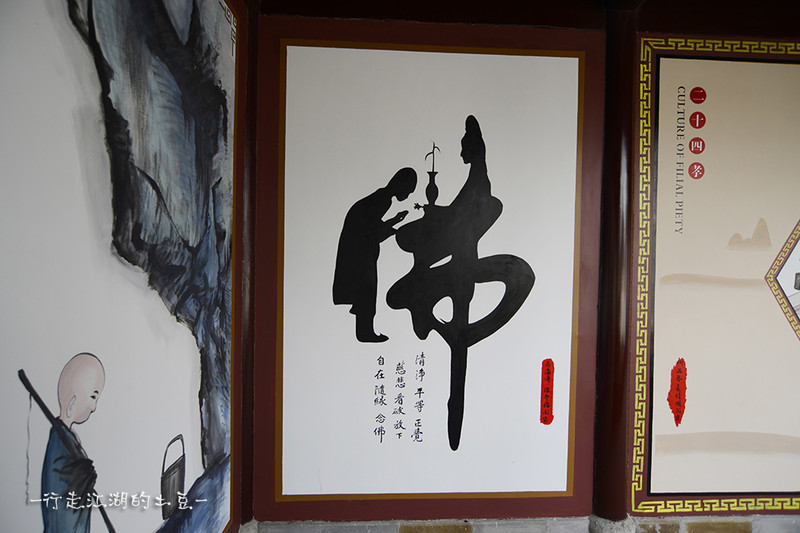 佛
清淨 平等 正覺
慈悲 看破 放下
自在 隨緣 念佛
二十四孝
CULTURE OF FILIAL PIETY
-行走江湖的土豆-